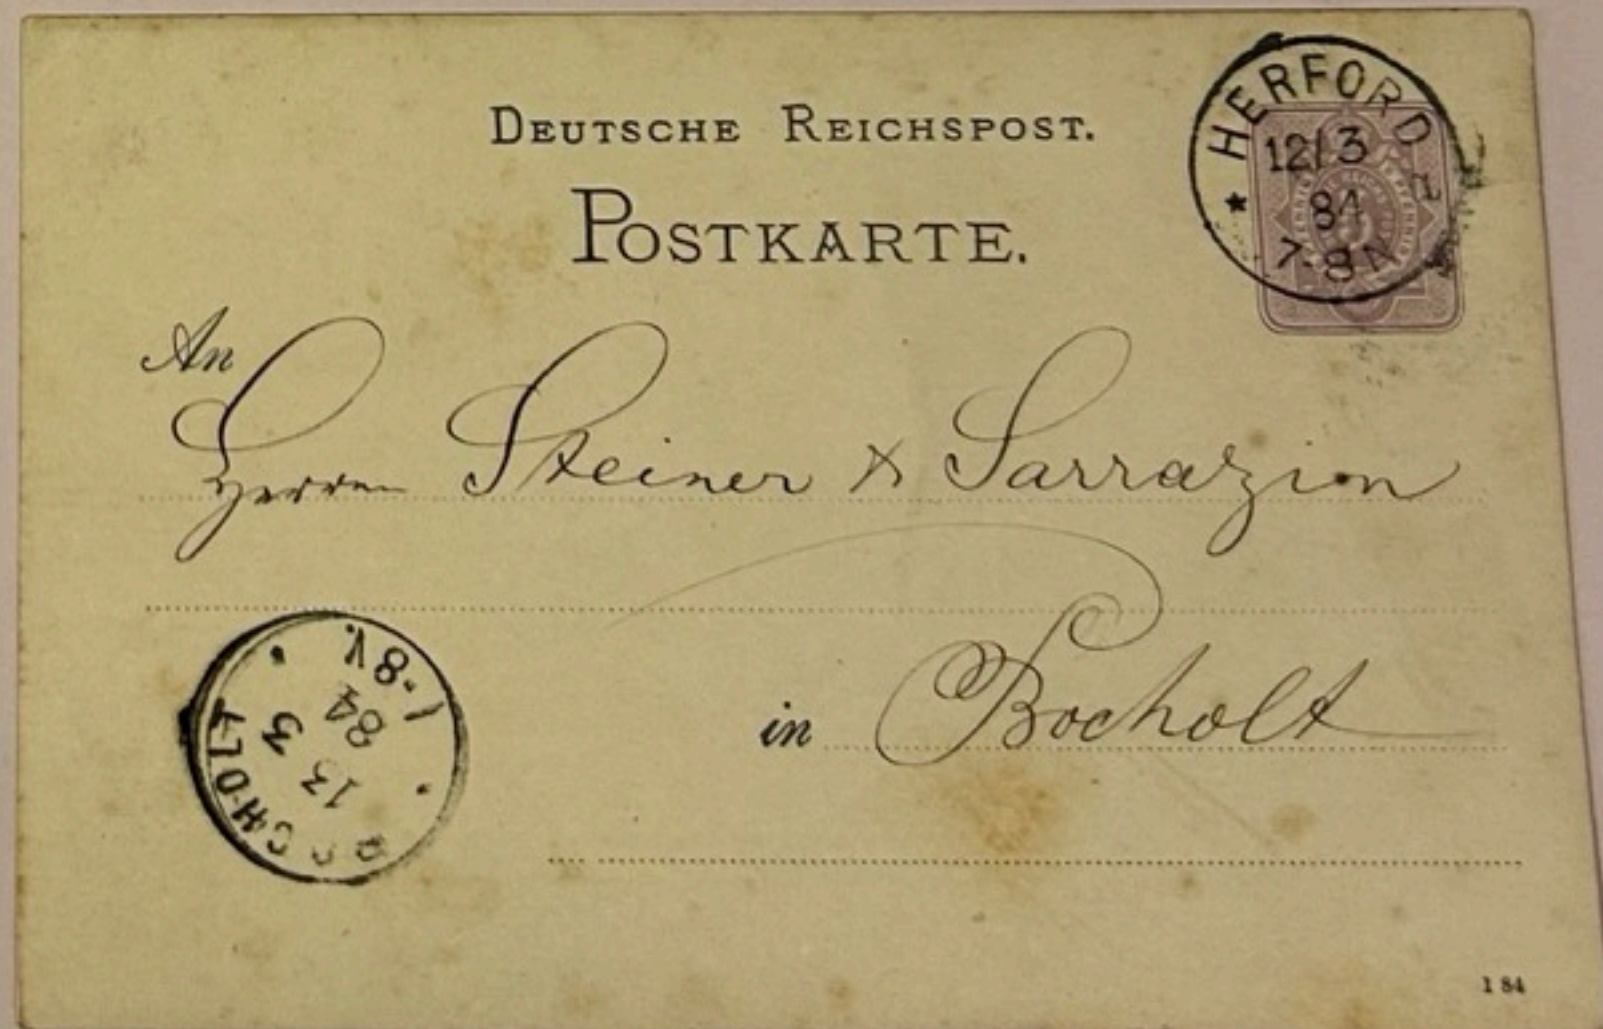 DEUTSCHE REICHSPOST.
POSTKARTE.
HERFORD
12/3
84
7-8N
An
Herren Steiner & Sarrazion
in Bocholt
BOCHOLT
13 3
84
-8V.
1 84